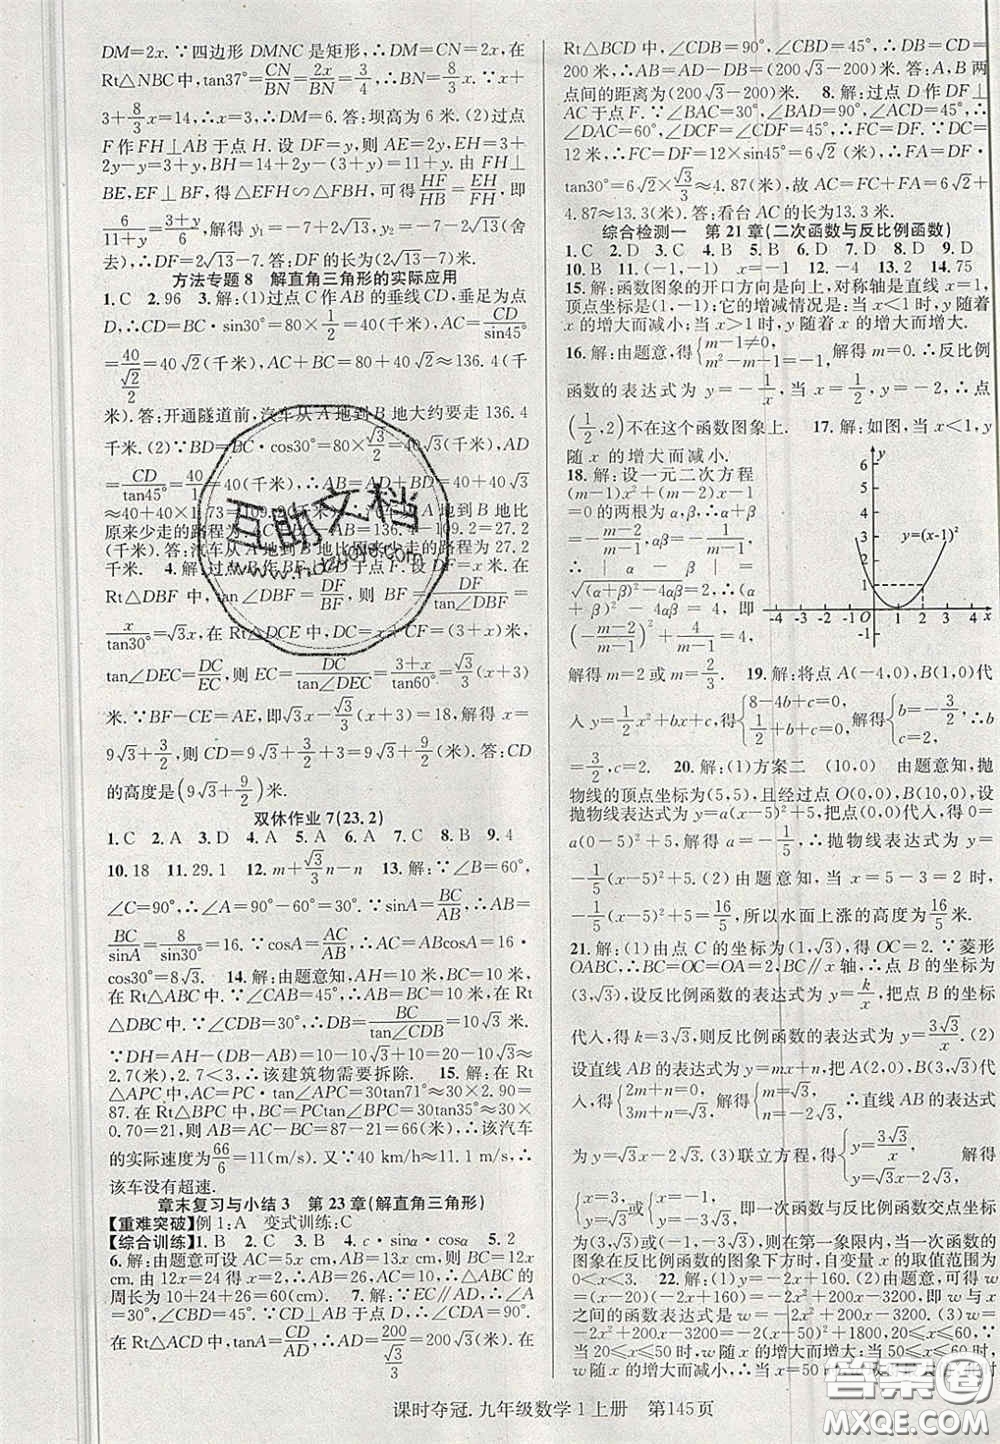 DM=2x.∵四边形 DMNC 是矩形,∴DM=CN=2x,在
Rt△NBC中,tan37°=CN/BN=2x/BN=3/4,∴BN=8/3x.∵x+
3+8/3x=14,∴x=3,∴DM=6.答:坝高为6米.(2)过点
F作FH⊥AB于点H.设DF=y,则AE=2y,EH=3+
2y-y=3+y,BH=14+2y-(3+y)=11+y.由FH⊥
BE,EF⊥BF,得△EFH∽△FBH,可得HF/HB=EH/FH,即
6/(11+y)=(3+y)/6,解得y₁=-7+2√13,y₂=-7-2√13(舍
去).∴DF=(2√13-7)米.
方法专题8 解直角三角形的实际应用
1.C 2.96 3.解:(1)过点C作AB的垂线CD,垂足为点
D,∴CD=BC·sin30°=80×1/2=40(千米),AC=CD/sin45°
=40/(√2/2)=40√2(千米),AC+BC=80+40√2≈136.4(千
米).答:开通隧道前,汽车从A地到B地大约要走136.4
千米.(2)∵BD=BC·cos30°=80×√3/2=40√3(千米),AD
=CD/tan45°=40/1=40(千米),∴AB=AD+BD=40+40√3
≈40+40×1.73=109.2(千米),∴AC+BC-AB≈136.4-109.2=27.2
(千米).答:汽车从A地到B地比原来少走的路程为27.2
千米. 4.解:过点D作DF⊥AB于点F.设DF=x米.在
Rt△DBF中,tan∠DBF=DF/BF,则BF=DF/tan∠DBF=
x/tan30°=√3x.在Rt△DCE中,DC=x+CF=(3+x)米,
tan∠DEC=DC/EC,则EC=DC/tan∠DEC=(3+x)/tan60°=√3/3(x+3)
米.∵BF-CE=AE,即√3x-√3/3(x+3)=18,解得x=
9√3+3/2,则CD=9√3+3/2+3=9√3+9/2(米).答:CD
的高度是(9√3+9/2)米.
双休作业7(23.2)
1.C 2.A 3.D 4.A 5.A 6.A 7.C 8.B 9.4
10.18 11.29.1 12.m+√3/3n-n 13.解:∵∠B=60°,
∠C=90°,∴∠A=90°-60°=30°.∵sinA=BC/AB,∴AB=
BC/sinA=8/sin30°=16.∵cosA=AC/AB,∴AC=ABcosA=16·
cos30°=8√3. 14.解:由题意知,AH=10米,BC=10米,
在Rt△ABC中.∵∠CAB=45°,∴AB=BC=10米,在Rt
△DBC中.∵∠CDB=30°,∴DB=BC/tan∠CDB=10√3米.
∵DH=AH-DB+AB=10-10√3+10=20-10√3≈
2.7(米).2.7<3,∴该建筑物需要拆除. 15.解:在Rt
△APC中,AC=PC·tan∠APC=30tan71°≈30×2.90=
87.在Rt△BPC中,BC=PC·tan∠BPC=30tan35°≈30
×0.70=21,则AB=AC-BC=87-21=66(米),∴该汽车
的实际速度为66/6=11(m/s).又∵40km/h≈11.1m/s,∴
该车没有超速.
章末复习与小结3 第23章(解直角三角形)
【重难突破】例1:A 变式训练:C
【综合训练】1.B 2.C 3.B 4.c·sinα·cosα 5.2
6.解:由题意可设AC=5x cm,AB=13x cm,则BC=12x
cm.由12x=24得x=2.∴AC=10 cm,AB=26 cm.∴△ABC的
周长为10+24+26=60(cm). 7.解:∵EC∥AD,∴∠A
=30°,∠CBD=45°,CD=200米.∵CD⊥AB于点D,∴
在Rt△ACD中,tanA=CD/AD,∴AD=200/(√3/3)=200√3(米).在
Rt△BCD中,∠CDB=90°,∠CBD=45°,∴DB=CD=
200米,∴AB=AD-DB=(200√3-200)米.答:A,B两
点间的距离为(200√3-200)米. 8.解:过点D作DF⊥
AC于点F.∵∠BAC=30°,∠BDA=90°,∠DAC=30°,∴
∠DAC=60°,∠DCF=∠CDF=45°,∴DF=CF.∵DC=
12米,∴FC=DF=12×sin45°=6√2(米),∴FA=DF·
tan30°=6√2×√3/3≈4.87(米),故AC=FC+FA=6√2+
4.87≈13.3(米).答:看台AC的长为13.3米.
综合检测一 第21章(二次函数与反比例函数)
1.C 2.D 3.C 4.B 5.B 6.D 7.D 8.D 9.D
10.B 11.-7 12.x₁=-1,x₂=3 13.2 14.75
15.解:函数图象的开口方向是向上,对称轴是直线x=1,
顶点坐标是(1,-1);它的增减情况是:当x<1时,y随着x
的增大而减小;当x>1时,y随着x的增大而增大.
16.解:由题意,得{m-1≠0, m²-m-1=-1,解得m=0.∴反比例
函数的表达式为y=-1/x,当x=1/2时,y=-2,∴点
(1/2,2)不在这个函数图象上. 17.解:如图,当x<1,y
随x的增大而减小.
18.解:设一元二次方程
(m-1)x²+(m-2)x-1
=0的两根为α,β,∴α+β
=-(m-2)/(m-1),αβ=-1/(m-1),
∴|α-β|=
√((α+β)²-4αβ)=
√(((m-2)/(m-1))²+4/(m-1))=2,
解得m=2或m=2/3.
y
6
5
4
3
2
1
-1
y=(x-1)²
-4 -3 -2 -1 O 1 2 3 4 x
19.解:将点A(-4,0),B(1,0)代
入y=1/2x²+bx+c,得{8-4b+c=0, 1/2+b+c=0,解得{b=3/2, c=-2.
20.解:(1)方案二 (10,0) 由题意知,抛
物线的顶点坐标为(5,5),且经过点O(0,0),B(10,0),设
抛物线表达式为y=a(x-5)²+5.把点(0,0)代入,得0=
a(0-5)²+5,即a=-1/5,∴抛物线表达式为y=
-1/5(x-5)²+5.(2)由题意知,当x=5-3=2时,
-1/5(x-5)²+5=16/5,所以水面上涨的高度为16/5米.
21.解:(1)由点C的坐标为(1,√3),得OC=2.∵菱形
OABC,∴BC=OC=OA=2,BC∥x轴,∴点B的坐标为
(3,√3),设反比例函数的表达式为y=k/x,将点B的坐标
代入,得k=3√3,则反比例函数的表达式为y=3√3/x.(2)
设直线AB的表达式为y=mx+n,把A(2,0),B(3,√3)代
入,得{2m+n=0, 3m+n=√3,解得{m=√3, n=-2√3,∴直线AB的表达式
为y=√3x-2√3.(3)联立方程,得{y=3√3/x, y=√3x-2√3,
为(3,√3)或(-1,-3√3),∴在第一象限内,一次函数的
图象在反比例函数的图象下方时,自变量x的取值范围为
0<x<3. 22.解:(1)y=-2x+160.(2)由题意,可得w=
(x-20)(-2x+160)=-2x²+200x-3200,即w与x
之间的函数表达式是w=-2x²+200x-3200.(3)w=
-2x²+200x-3200=-2(x-50)²+1800,20≤x≤60,∴当
20≤x≤50时,w随x的增大而增大;当50≤x≤60时,
w随x的增大而减小,∴当x=50时
互助文档
www.hdzuoye.com
答案圈
MXQE.COM
课时夺冠.九年级数学1上册 第145页